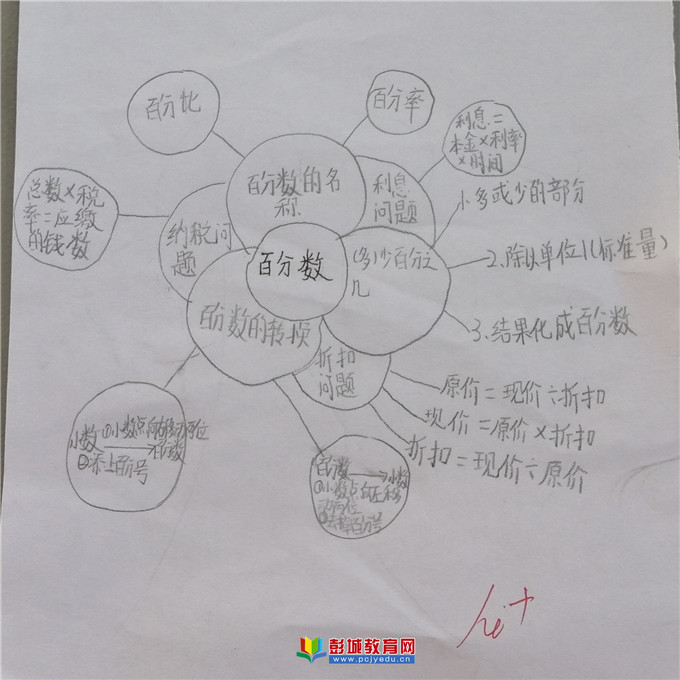 百分比
百分率
百分数的名
称
利息
问题
利息=
本金×利率
×时间
总数×税
率=应缴
的钱数
纳税问
题
百分数
(多)少百分之
几
1.多或少的部分
2.除以单位1(标准量)
3.结果化成百分数
百分数的转换
折扣
问题
原价=现价÷折扣
现价=原价×折扣
折扣=现价÷原价
小数 ①小数点向右移动两位
百分数
②添上百分号
百分数 小数
①小数点向左移
动两位
②去掉百分号
彭城教育网
www.pcjyedu.cn